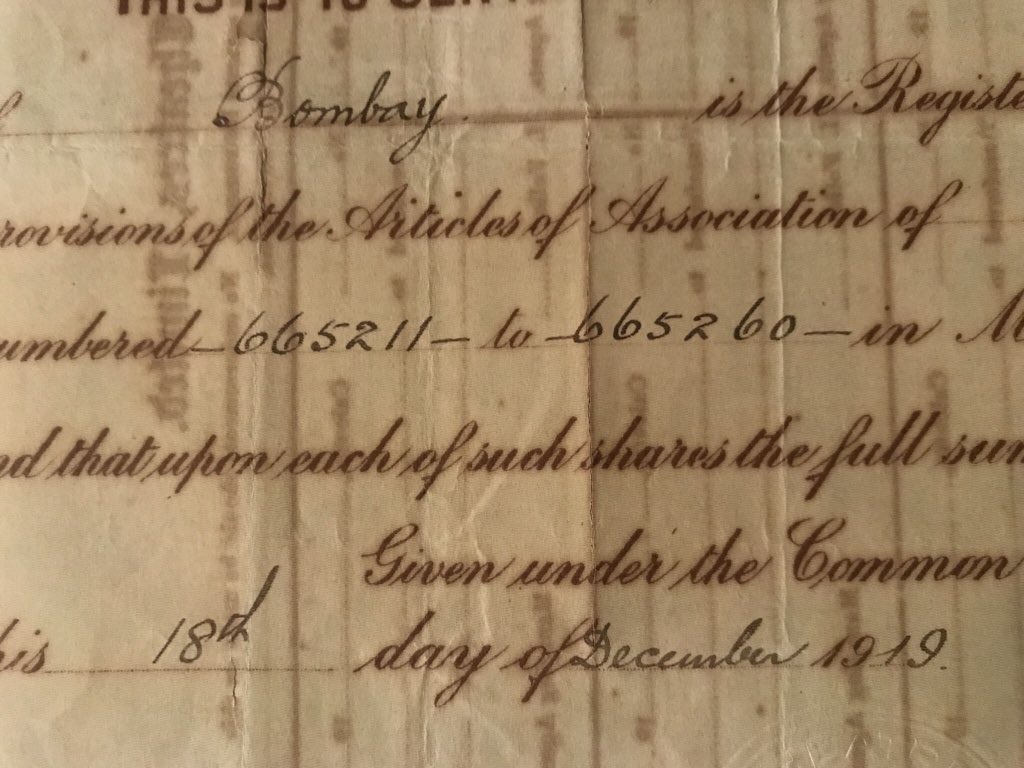 THIS IS TO
Bombay. is the Registe
rovisions of the Articles of Association of
umbered — 665211 — to — 665260 — in M
nd that upon each of such shares the full sum
Given under the Common
his 18th day of December 1919.